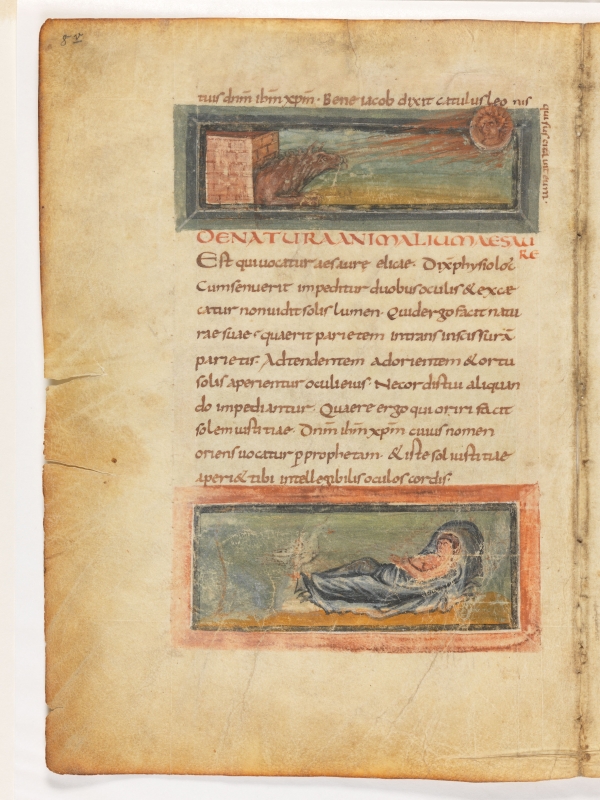 tuis dnm ihm xpm. Bene iacob dixit catulus leo nis
qui suscitavit eum.
DE NATURA ANIMALIUM AESAU
RE
Est qui vocatur aesaure elicae. Dix physiolos
Cum senuerit impeditur duobus oculis & excae
catur non vidit solis lumen. Quid ergo facit natu
rae suae quaerit parietem intrans in scissurā
parietis. Ad tendentem ad orientem & ortu
solis aperientur oculi eius. Ne cor dis tui aliquan
do impediantur. Quaere ergo qui oriri facit
solem iustitiae. Dnm ihm xpm cuius nomen
oriens vocatur p prophetam. & iste sol iustitiae
aperi& tibi intellegibilis oculos cordis.